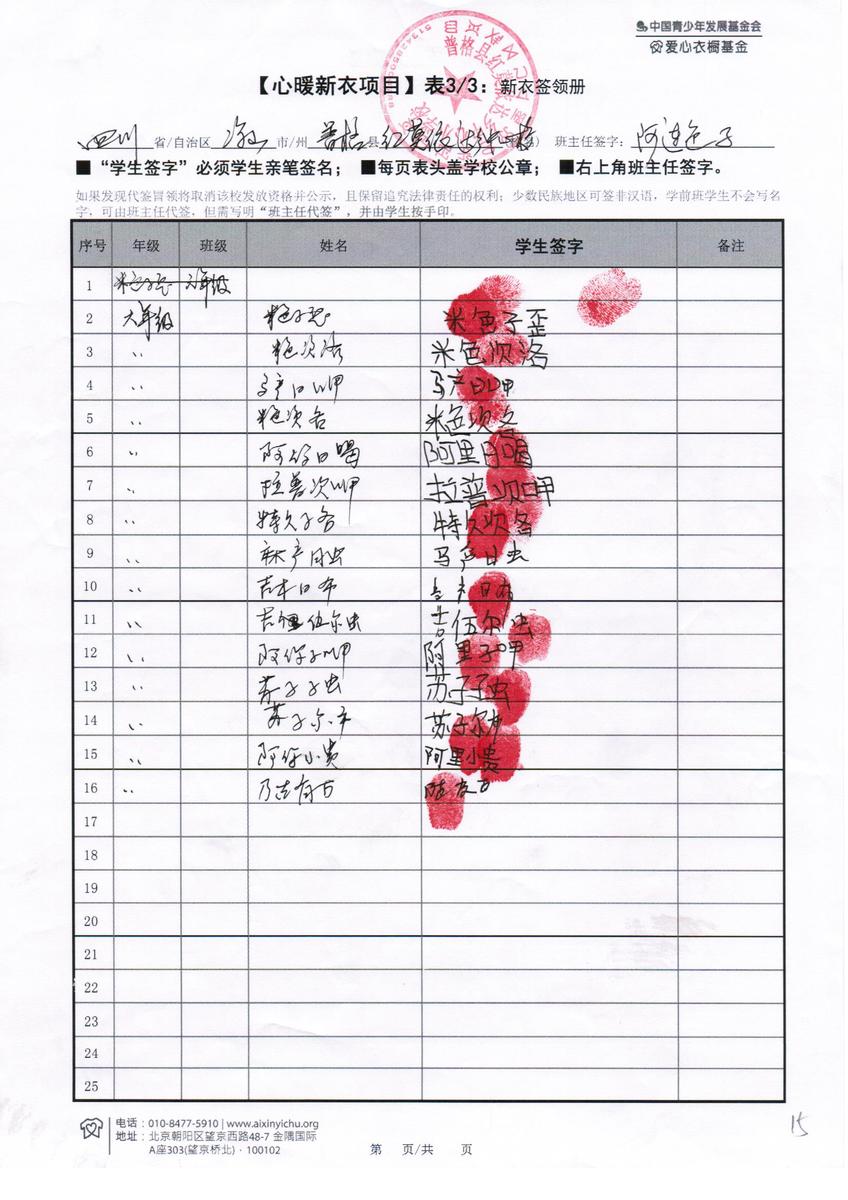 中国青少年发展基金会
爱心衣橱基金
普格县红莫
【心暖新衣项目】表3/3：新衣签领册
四川 省/自治区 市/州 普格 县 红莫 班主任签字：阿 色子
■“学生签字”必须学生亲笔签名； ■每页表头盖学校公章； ■右上角班主任签字。
如果发现代签冒领将取消该校发放资格并公示，且保留追究法律责任的权利；少数民族地区可签非汉语，学前班学生不会写名
字，可由班主任代签，但需写明“班主任代签”，并由学生按手印。
序号 年级 班级 姓名 学生签字 备注
1 六年级
2 六年级 米色子歪 米色子歪
3 〃 米色次洛 米色次洛
4 〃 马产日呷 马产日呷
5 〃 米色次各 米色次各
6 〃 阿里日喝 阿里日喝
7 〃 拉普次呷 拉普次呷
8 〃 特久子各 特久次各
9 〃 产日虫 马产日虫
10 〃 吉木日布 日布
11 〃 吉 伍尔虫 吉伍尔虫
12 〃 阿 子呷 阿里子呷
13 〃 苏子子虫 苏子子虫
14 〃 苏子尔 苏子尔
15 〃 阿 小贵 阿里小贵
16 〃 乃古有古
17
18
19
20
21
22
23
24
25
电话：010-8477-5910 | www.aixinyichu.org
地址：北京朝阳区望京西路48-7 金隅国际
A座303(望京桥北)·100102
第 页/共 页
15